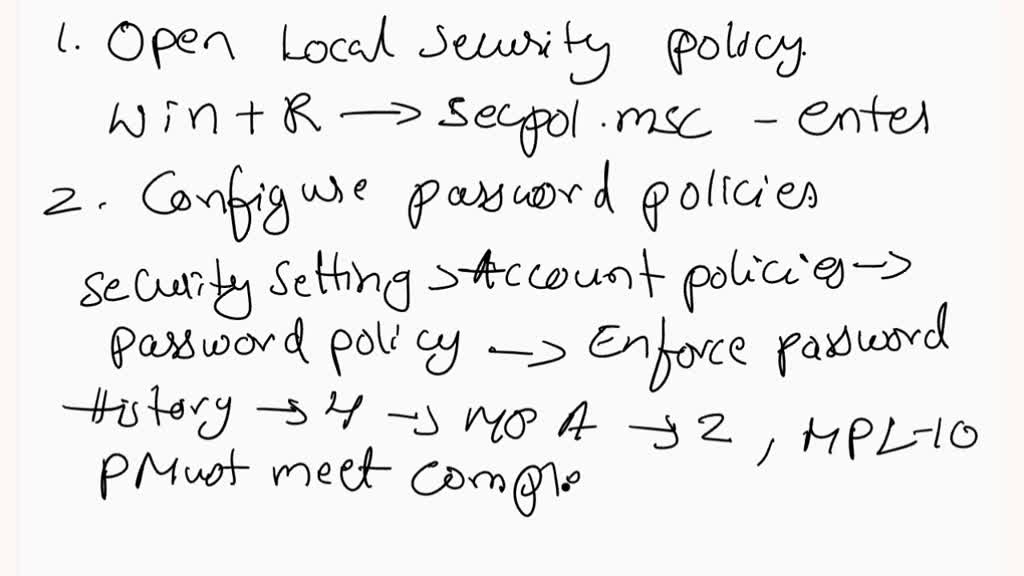 1. Open Local Security policy.
Win + R → Secpol.msc - enter
2. Configure password policies
Security Setting → Account policies →
password policy → Enforce password
History → 4 → MP A → 2, MPL-10
P Must meet compl.